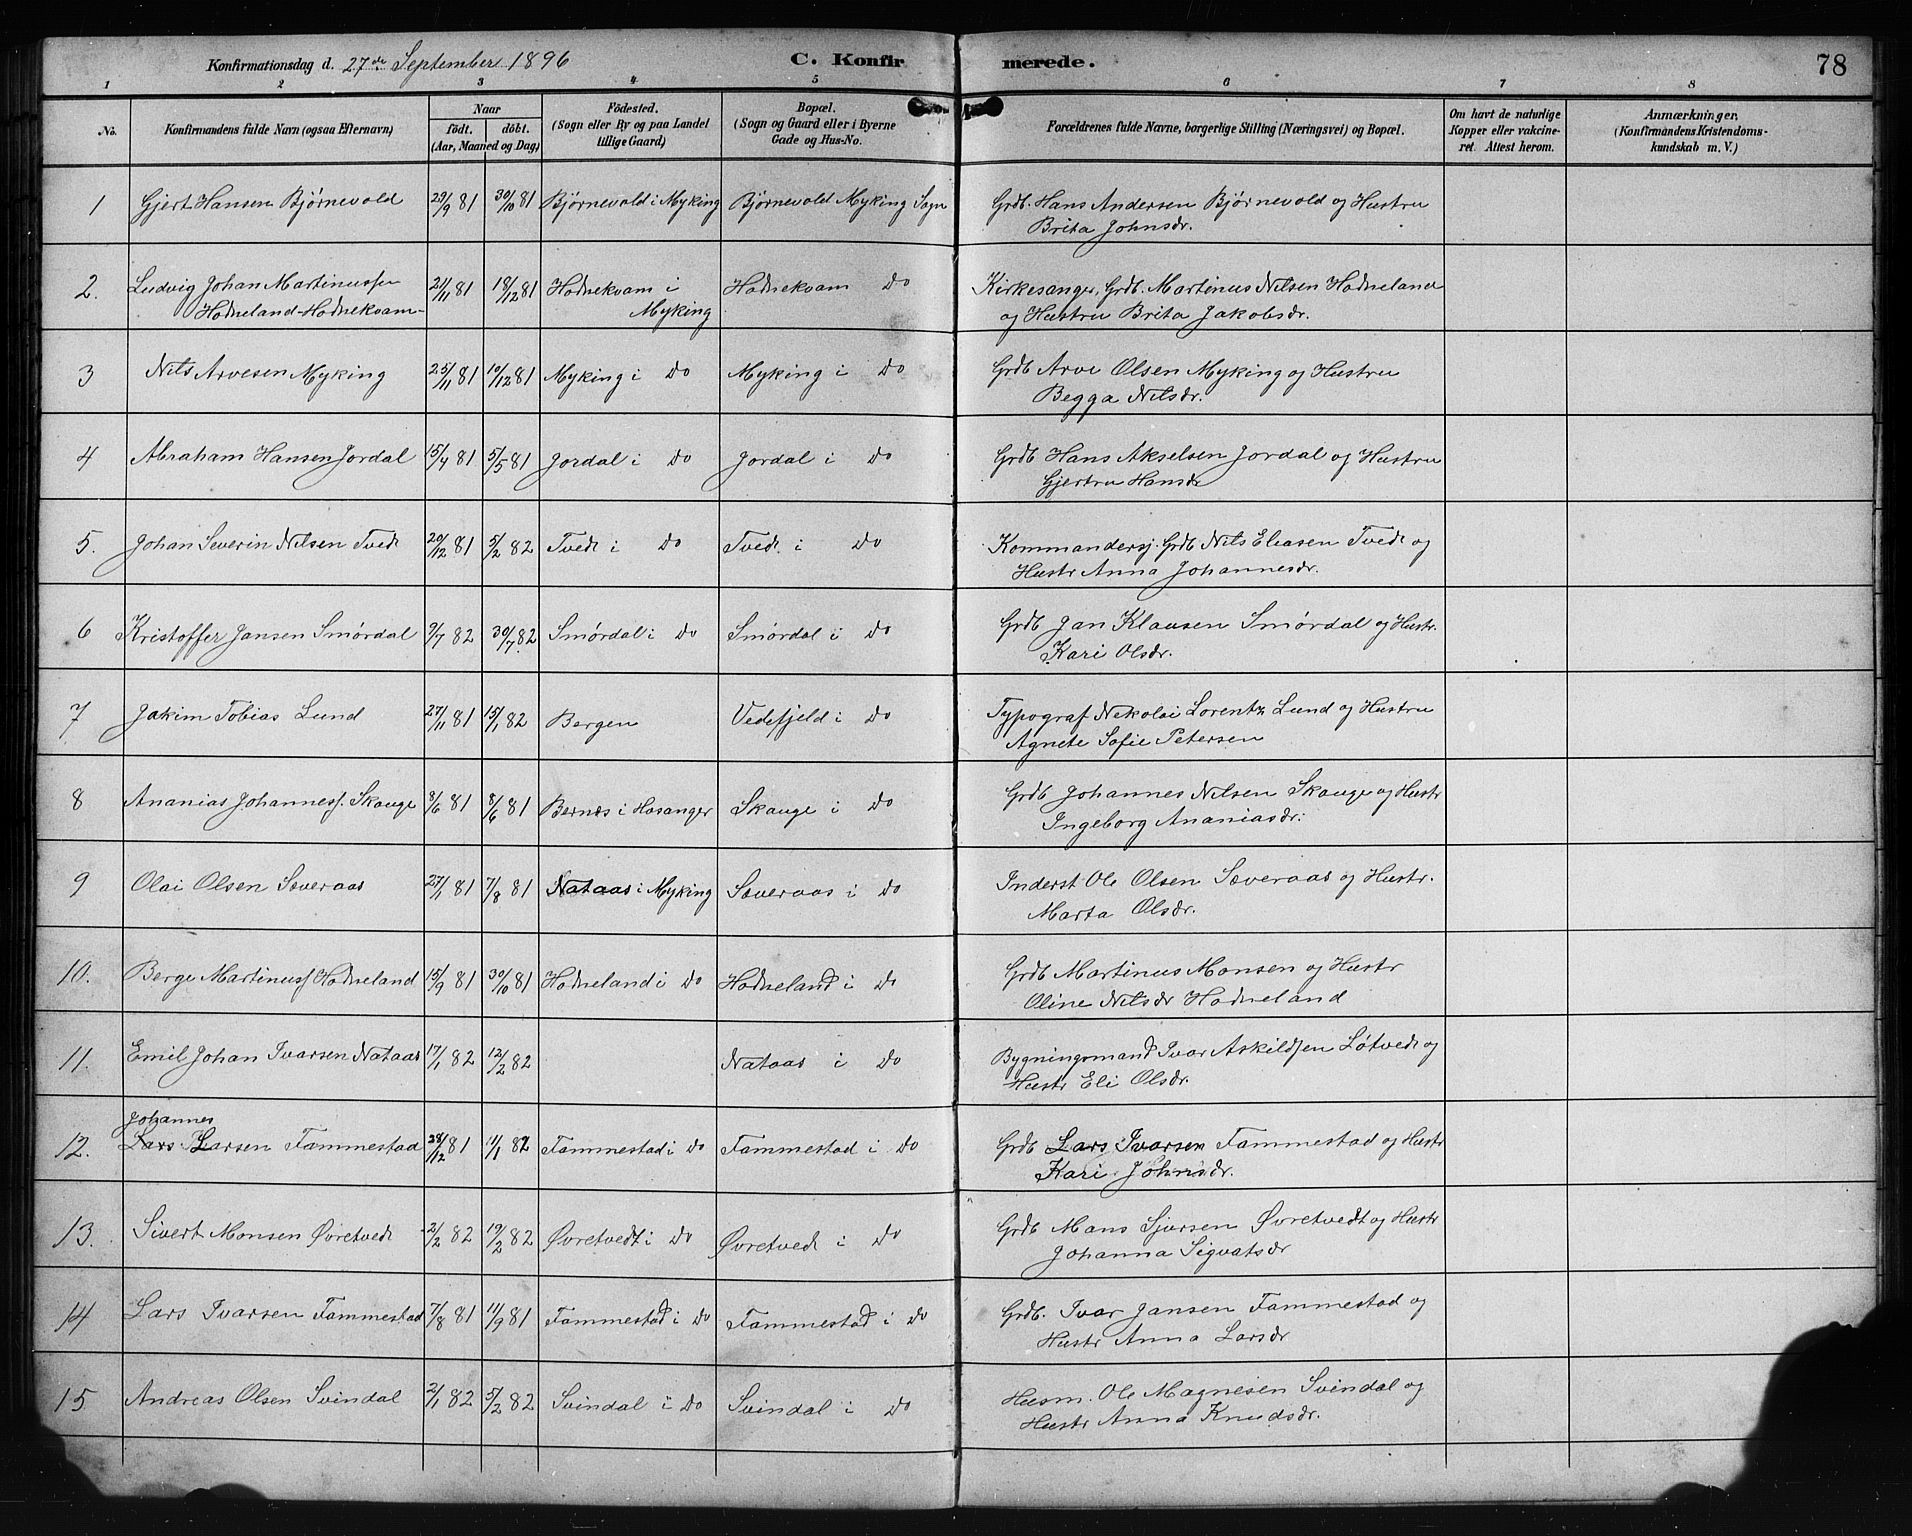 Konfirmationsdag d. 27de September 1896 C. Konfirmerede. 78
1 2 3 4 5 6 7 8
No. Konfirmandens fulde Navn (ogsaa Efternavn) Naar födt. döbt. (Aar, Maaned og Dag) Födested. (Sogn eller By og paa Landet tillige Gaard) Bopæl. (Sogn og Gaard eller i Byerne Gade og Hus-No. Forældrenes fulde Navne, borgerlige Stilling (Næringsvei) og Bopæl. Om havt de naturlige Kopper eller vakcineret. Attest herom. Anmærkninger. (Konfirmandens Kristendomskundskab m. V.)
1 Gjert Hansen Bjørnevold 29/9 81 30/10 81 Bjørnevold i Myking Bjørnevold Myking Sogn Grdb. Hans Andersen Bjørnevold og Hustru
Brita Johnsdr.
2. Ludvig Johan Martinussen 21/11 81 18/12 81 Hodnekvam i Hodnekvam Do Kirkesanger, Grdb. Martinus Nilsen Hodneland
Hodneland-Hodnekvam- Myking og Hustru Brita Jakobsdr.
3 Nils Arvesen Myking 25/11 81 10/12 81 Myking i Do Myking i Do Grdb Arve Olsen Myking og Hustru
Begga Nilsdr.
4 Abraham Hansen Jordal 15/4 81 5/5 81 Jordal i Do Jordal i Do Grdb Hans Akselsen Jordal og Hustru
Gjertru Hansdr
5. Johan Severin Nilsen Tvedt 20/12 81 5/2 82 Tvedt i Do Tvedt i Do Kommandersj. Grdb Nils Eliasen Tvedt og
Hustr Anna Johannesdr.
6 Kristoffer Jansen Smørdal 9/7 82 30/7 82 Smørdal i Do Smørdal i Do Grdb Jan Klausen Smørdal og Hustr.
Kari Olsdr.
7 Jakim Tobias Lund 27/11 81 15/1 82 Bergen Vedefjeld i Do Typograf Nekolai Lorentz Lund og Hustru
Agnete Sofie Petersen
8 Ananias Johanness. Skauge 3/6 81 8/6 81 Bernæs i Hosanger Skauge i Do Grdb Johannes Nilsen Skauge og Hustr
Ingeborg Ananiasdr.
9 Olai Olsen Sæveraas 27/1 81 7/8 81 Nataas i Myking Sæveraas i Do Inderst Ole Olsen Sæveraas og Hustr.
Marta Olsdr.
10. Berge Martinuss Hodneland 15/9 81 30/10 81 Hodneland i Do Hodneland i Do Grdb Martinus Monsen og Hustr
Oline Nilsdr Hodneland
11. Emil Johan Ivarsen Nataas 17/1 82 12/2 82 Nataas i Do Bygningsmand Ivar Askildsen Løtvedt og
Hustr Eli Olsdr.
Johannes
12. Lars Larsen Fammestad 28/12 81 11/1 82 Fammestad i Do Fammestad i Do Grdb Lars Ivarsen Fammestad og Hustr
Kari Johnsdr.
13. Sivert Monsen Øvretvedt 2/2 82 19/2 82 Øvretvedt i Do Øvretvedt i Do Grdb Mons Sjursen Øvretvedt og Hustr
Johanna Sigvatsdr
14 Lars Ivarsen Fammestad 7/8 81 11/9 81 Fammestad i Do Fammestad i Do Grdb. Ivar Jansen Fammestad og
Hustr Anna Larsdr
15 Andreas Olsen Svindal 2/1 82 5/2 82 Svindal i Do Svindal i Do Husm. Ole Magnesen Svindal og
Hustr Anna Knudsdr.